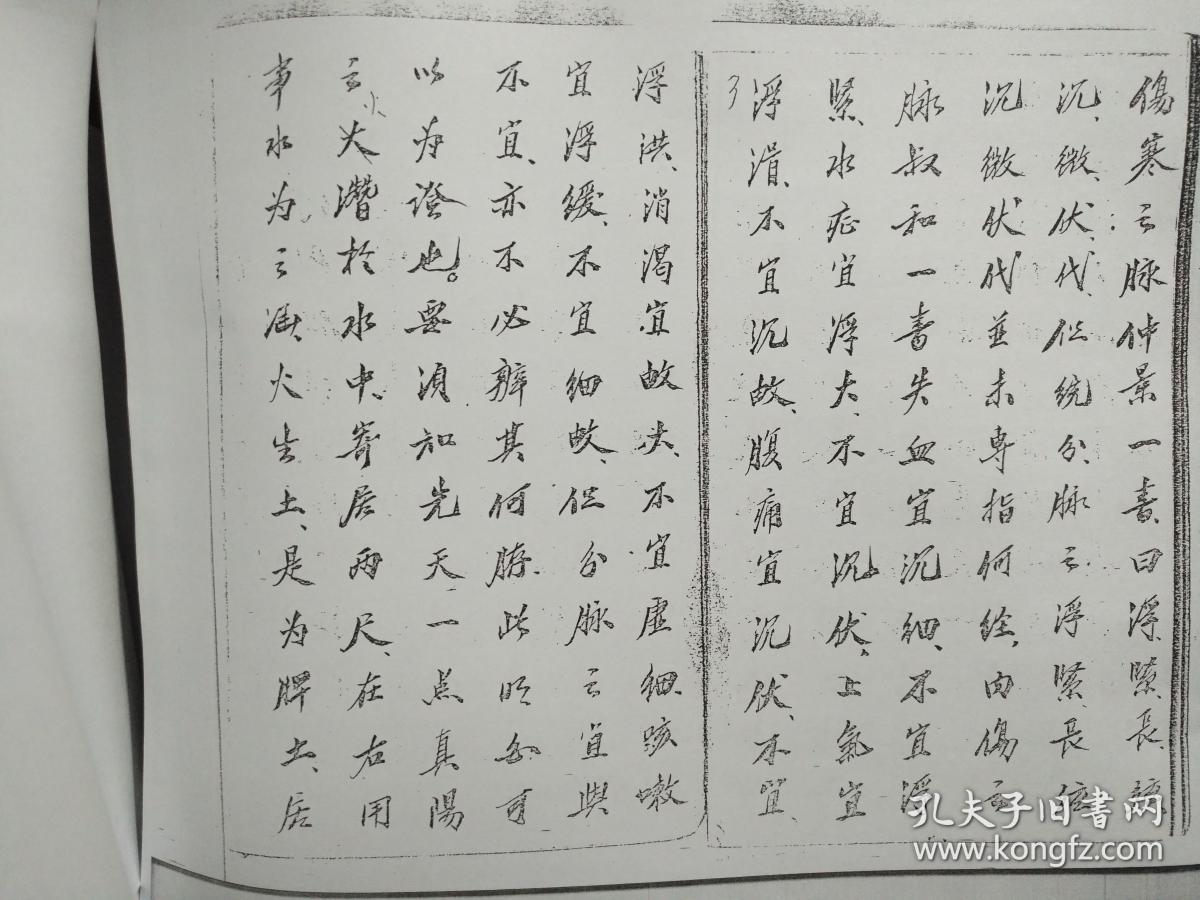 傷寒之脉仲景一書曰浮緊長
沉、微、伏、代、但统分脉之浮緊長
沉微伏代並未専指何经、内傷之
脉叔和一書失血宜沉细、不宜浮
緊、水症宜浮大、不宜沉伏、上氣宜
3
浮滑、不宜沉故、腹痛宜沉伏、不宜
浮洪、消渴宜故大、不宜虚细、咳嗽
宜浮缓、不宜细故、但分脉之宜與
不宜、亦不必辨其何脐、此可
以为證也。要須知先天一点真陽
之火潛於水中、寄居兩尺、在右用
火
事水为之火生土、是为脾土、居
孔夫子旧书网
www.kongfz.com